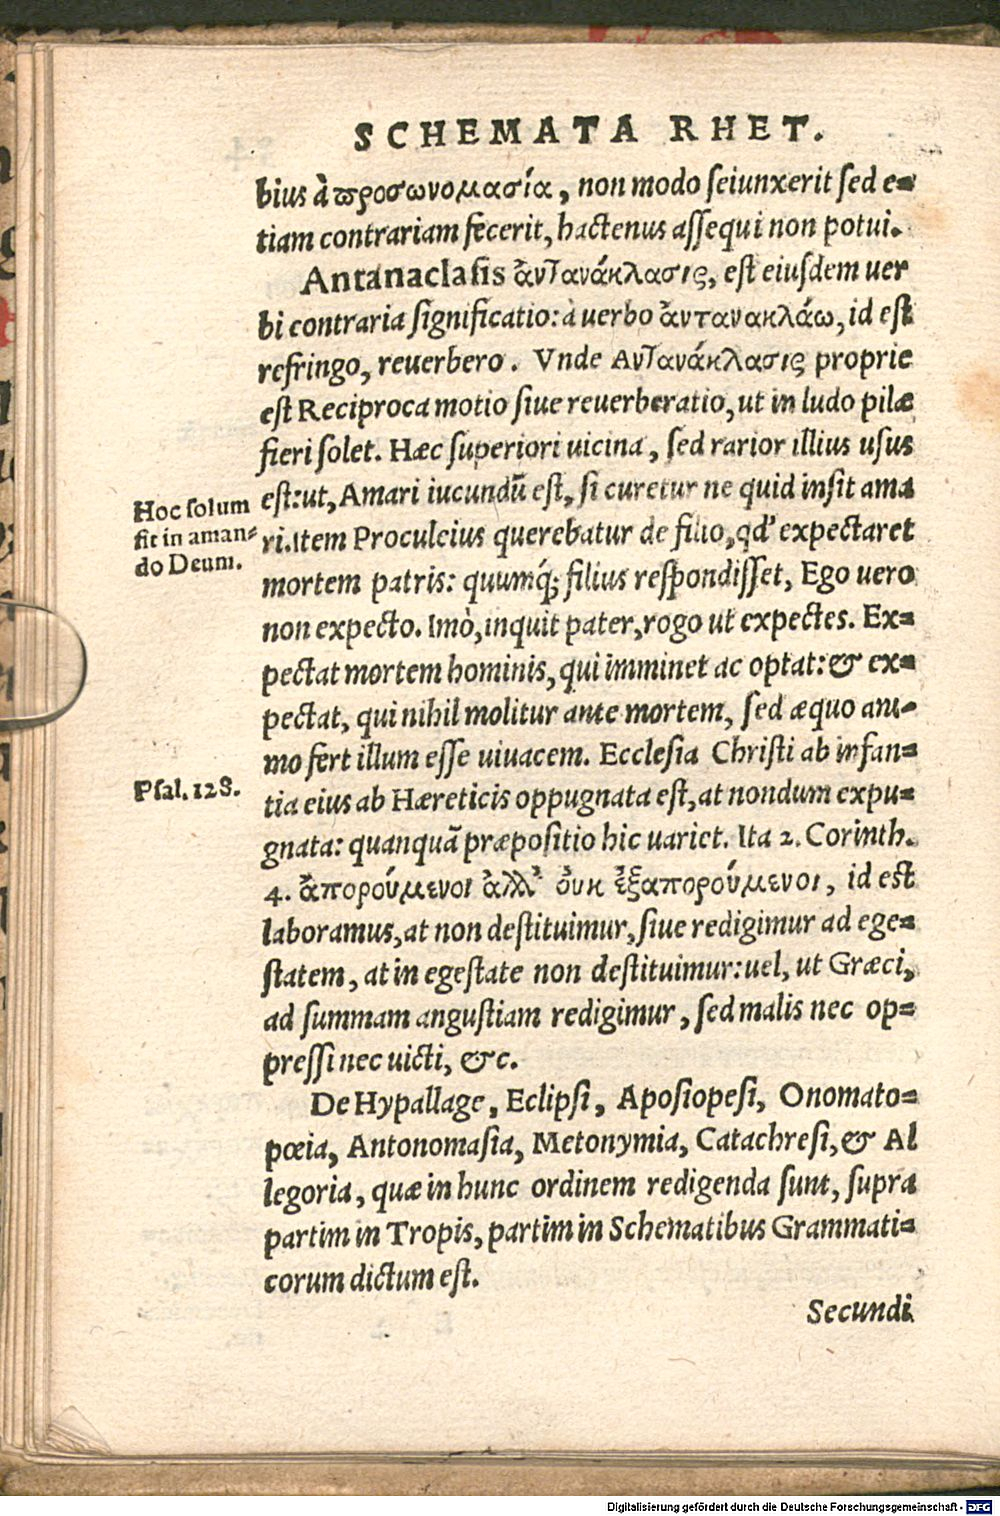 SCHEMATA RHET.
bius à ϖροσωνομασία, non modo ſeiunxerit ſed e-
tiam contrariam fecerit, hactenus aſſequi non potui.
Antanaclaſis ἀντανάκλασις, eſt eiuſdem uer
bi contraria ſignificatio: à uerbo ἀντανακλάω, id eſt
refringo, reuerbero. Vnde Αντανάκλασις proprie
eſt Reciproca motio ſiue reuerberatio, ut in ludo pilæ
fieri ſolet. Hæc ſuperiori uicina, ſed rarior illius uſus
Hoc ſolum
fit in aman-
do Deum.
eſt: ut, Amari iucundũ eſt, ſi curetur ne quid inſit ama
ri. Item Proculeius querebatur de filio, qđ expectaret
mortem patris: quumq́; filius reſpondiſſet, Ego uero
non expecto. Imò, inquit pater, rogo ut expectes. Ex-
pectat mortem hominis, qui imminet ac optat: & ex-
pectat, qui nihil molitur ante mortem, ſed æquo ani-
mo fert illum eſſe uiuacem. Eccleſia Chriſti ab infan-
Pſal. 128.
tia eius ab Hæreticis oppugnata eſt, at nondum expu-
gnata: quanquã præpoſitio hic uariet. Ita 2. Corinth.
4. ἀπορούμενοι ἀλλ' ὀυκ ἐξαπορούμενοι, id eſt
laboramus, at non deſtituimur, ſiue redigimur ad ege-
ſtatem, at in egeſtate non deſtituimur: uel, ut Græci,
ad ſummam anguſtiam redigimur, ſed malis nec op-
preſſi nec uicti, &c.
De Hypallage, Eclipſi, Apoſiopeſi, Onomato-
pœia, Antonomaſia, Metonymia, Catachreſi, & Al
legoria, quæ in hunc ordinem redigenda ſunt, ſupra
partim in Tropis, partim in Schematibus Grammati-
corum dictum eſt.
Secundi
Digitalisierung gefördert durch die Deutsche Forschungsgemeinschaft - DFG